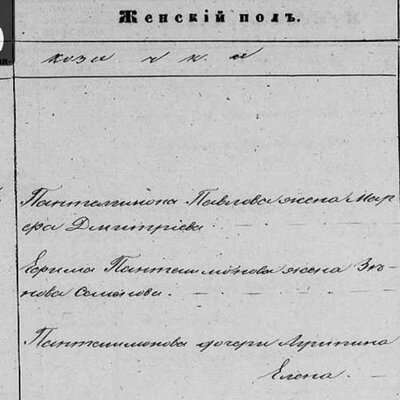 Женскій полъ.
коза ч к а
Пантелимона Павлова жена Мар-
фа Дмитріева
Ефима Пантелимонова жена Зѣ-
нова Семенова.
Пантелимонова дочери Агрипина
Елена.